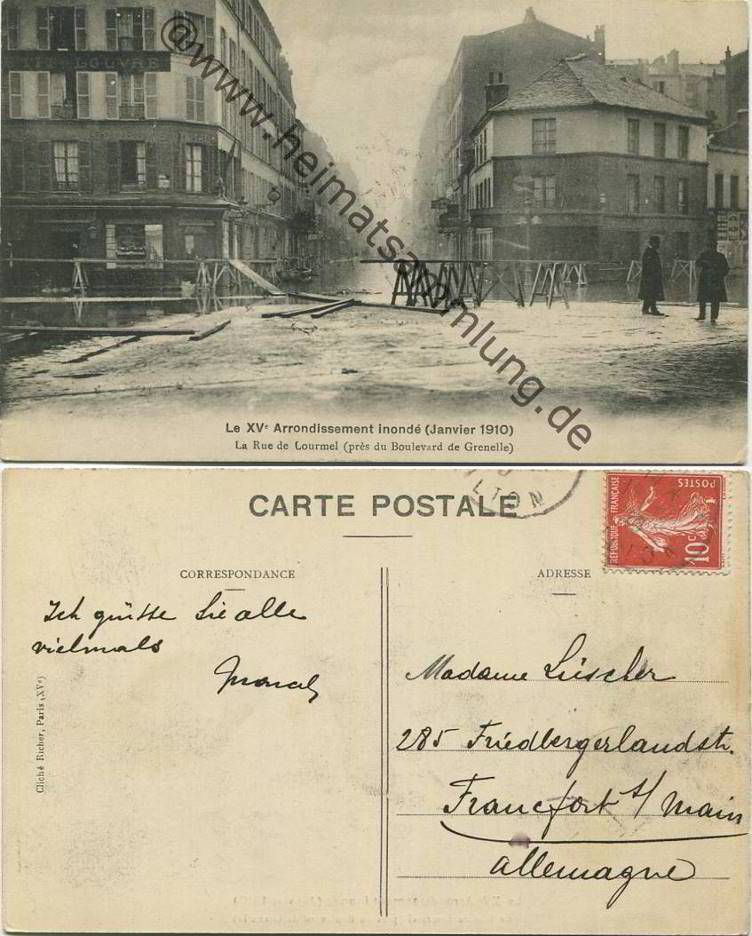 TIT-LOUVRE
@www.heimatsammlung.de
Le XVe Arrondissement inondé (Janvier 1910)
La Rue de Lourmel (près du Boulevard de Grenelle)
CARTE POSTALE
RÉPUBLIQUE FRANÇAISE
POSTES
10c
CORRESPONDANCE
ADRESSE
Ich grüsse Sie alle
vielmals
Madame Lüscher
285 Friedbergerlandstr.
Francfort s/ Main
Allemagne
Cliché Richer, Paris (XVe)